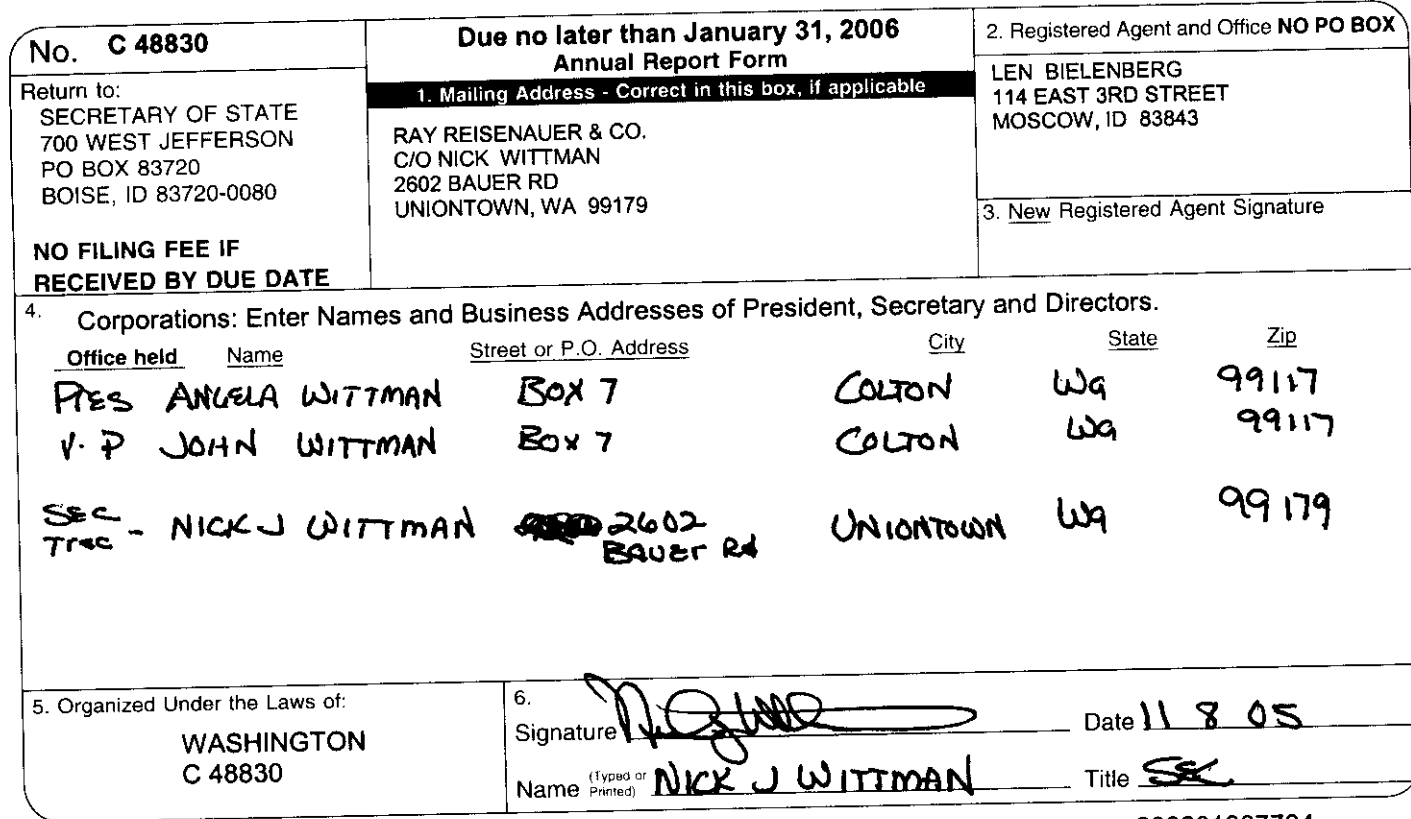 No. C 48830
Return to:
SECRETARY OF STATE
700 WEST JEFFERSON
PO BOX 83720
BOISE, ID 83720-0080
NO FILING FEE IF
RECEIVED BY DUE DATE
Due no later than January 31, 2006
Annual Report Form
1. Mailing Address - Correct in this box, if applicable
RAY REISENAUER & CO.
C/O NICK WITTMAN
2602 BAUER RD
UNIONTOWN, WA 99179
2. Registered Agent and Office NO PO BOX
LEN BIELENBERG
114 EAST 3RD STREET
MOSCOW, ID 83843
3. New Registered Agent Signature
4. Corporations: Enter Names and Business Addresses of President, Secretary and Directors.
Office held Name Street or P.O. Address City State Zip
Pres ANGELA WITTMAN Box 7 COLTON Wa 99117
V. P JOHN WITTMAN Box 7 COLTON Wa 99117
Sec - NICK J WITTMAN 2602 UNIONTOWN Wa 99179
Trec BAUER Rd
5. Organized Under the Laws of:
WASHINGTON
C 48830
6.
Signature Date 11 8 05
Name (Typed or Printed) NICK J WITTMAN Title Sec